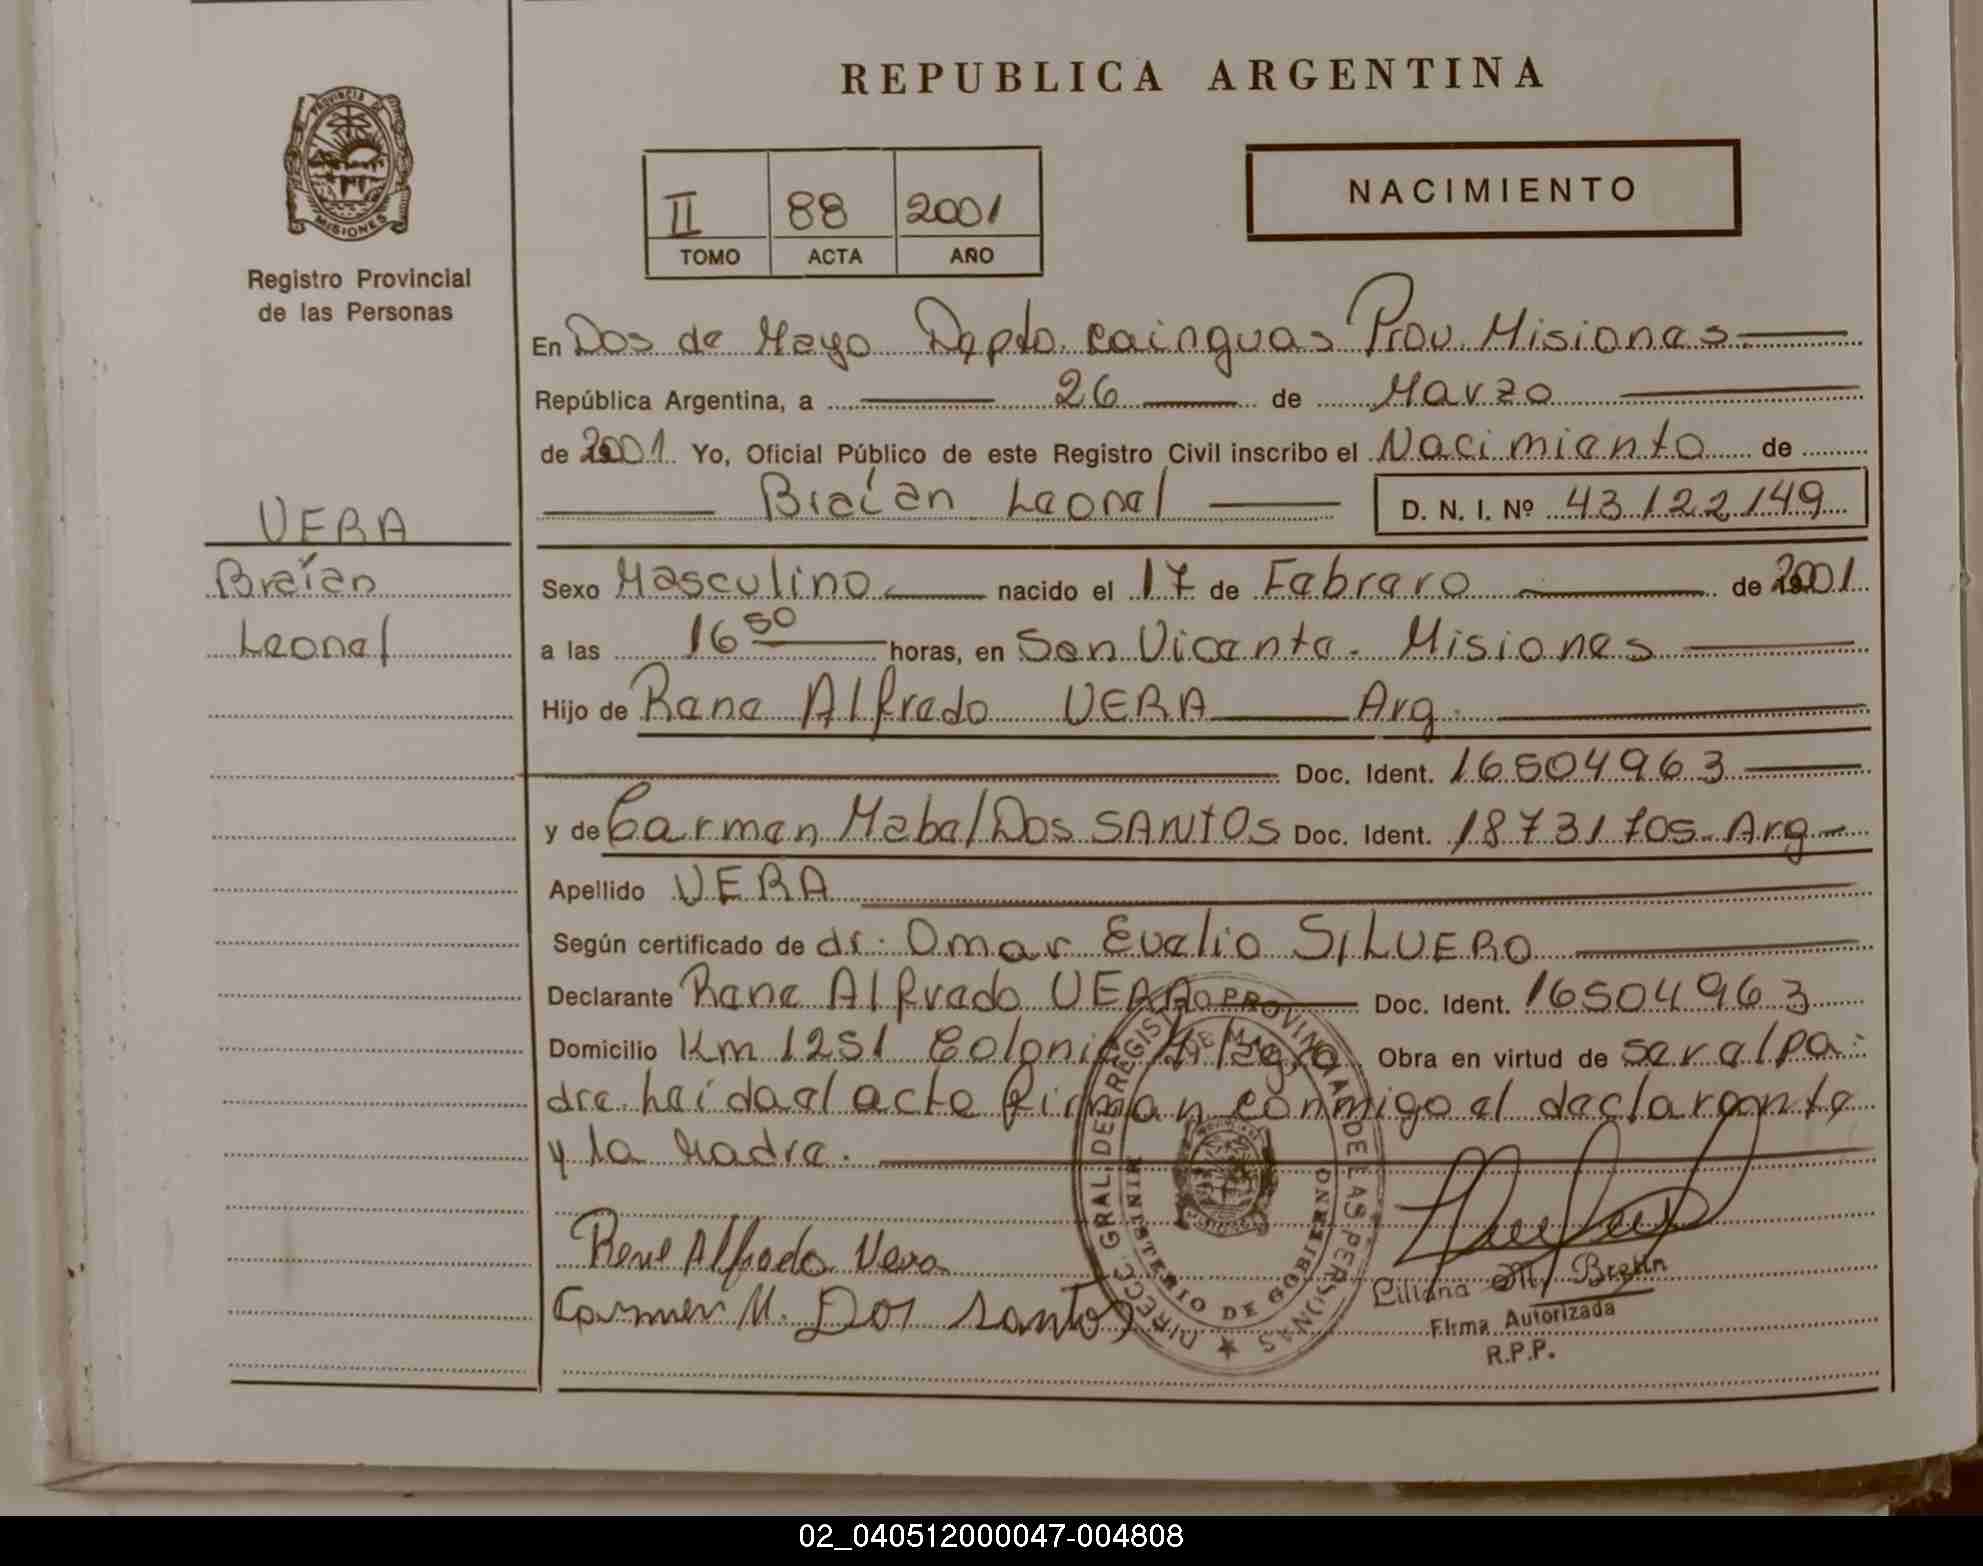 REPUBLICA ARGENTINA
PROVINCIA DE
MISIONES
Registro Provincial
de las Personas
II 88 2001
TOMO ACTA AÑO
NACIMIENTO
En Dos de Mayo Depto. Cainguas Prov. Misiones
República Argentina, a 26 de Marzo
de 2001 Yo, Oficial Público de este Registro Civil inscribo el Nacimiento de
Braían Leonel D. N. I. Nº 43122149
VERA
Braían
Leonel
Sexo Masculino nacido el 17 de Febrero de 2001
a las 16 50 horas, en San Vicente. Misiones
Hijo de Rene Alfredo VERA Arg.
Doc. Ident. 16504963
y de Carmen Mabel Dos SANTOS Doc. Ident. 18731705 Arg
Apellido VERA
Según certificado de dr. Omar Evelio SILVERO
Declarante Rene Alfredo VERA Doc. Ident. 16504963
Domicilio Km 1251 Colonia Alegro Obra en virtud de ser el pa-
dre. Leída el acta firman conmigo el declarante
y la Madre.
DIRECC. GRAL. DEL REGISTRO PROVINCIAL DE LAS PERSONAS
MINISTERIO DE GOBIERNO
Rene Alfredo Vera
Carmen M. Dos Santos
Liliana M. Brehn
Firma Autorizada
R.P.P.
02_040512000047-004808